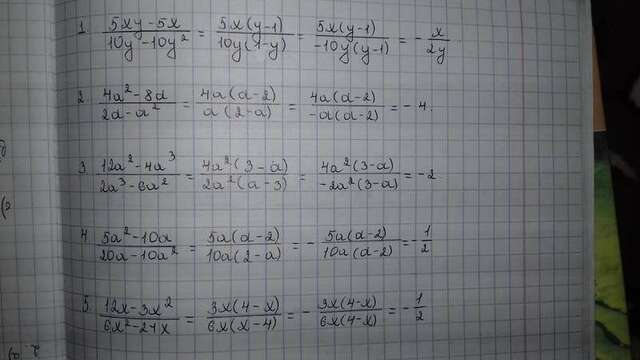 1. (5xy - 5x)/(10y - 10y²) = (5x(y-1))/(10y(1-y)) = (5x(y-1))/(-10y(y-1)) = - x/(2y)
2. (4a² - 8a)/(2a - a²) = (4a(a-2))/(a(2-a)) = (4a(a-2))/(-a(a-2)) = - 4.
3. (12a² - 4a³)/(2a³ - 6a²) = (4a²(3-a))/(2a²(a-3)) = (4a²(3-a))/(-2a²(3-a)) = -2
4. (5a² - 10a)/(20a - 10a²) = (5a(a-2))/(10a(2-a)) = - (5a(a-2))/(10a(a-2)) = - 1/2
5. (12x - 3x²)/(6x² - 24x) = (3x(4-x))/(6x(x-4)) = - (3x(4-x))/(6x(4-x)) = - 1/2